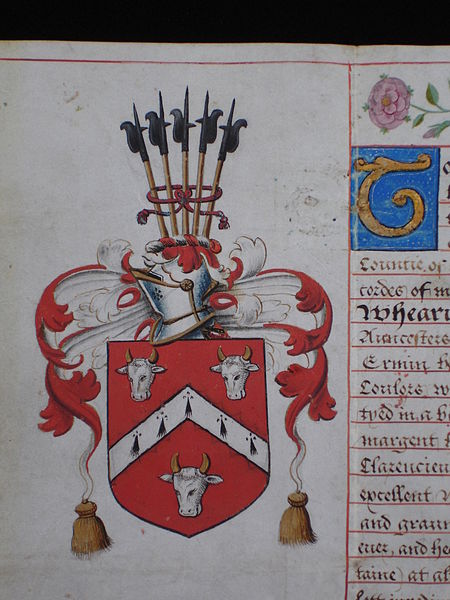 T
Countie of
cordes of
Whear
Auncesters
Ermin
Coulors
tyed in a
margent
Clarencieu
excellent
and graun
euer, and he
taine) at al